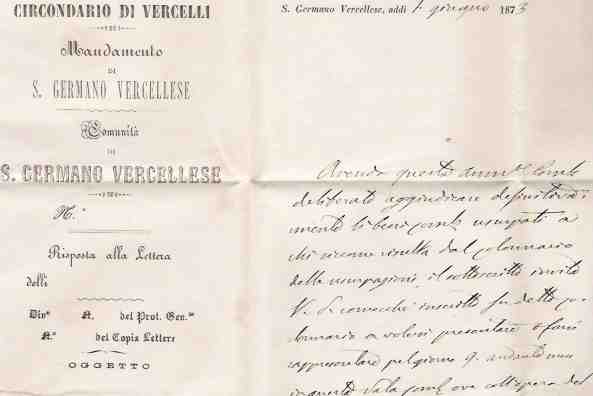 CIRCONDARIO DI VERCELLI
Mandamento
DI
S. GERMANO VERCELLESE
Comunità
DI
S. GERMANO VERCELLESE
N.°
Risposta alla Lettera
delli
Div.e N. del Prot. Gen.le
N.° del Copia Lettere
OGGETTO
S. Germano Vercellese, addì 1. giugno 1873
Avendo questa Amm.e Com.le
deliberato aggiudicare definitiva-
mente li beni com.li usurpati a
chi ne risulta dal sommario
delle usurpazioni, il sottoscritto invita
V. S.
a volersi presentare o farsi
rappresentare pel giorno 9. andante mese
in questa sala com.le ove all'opera del